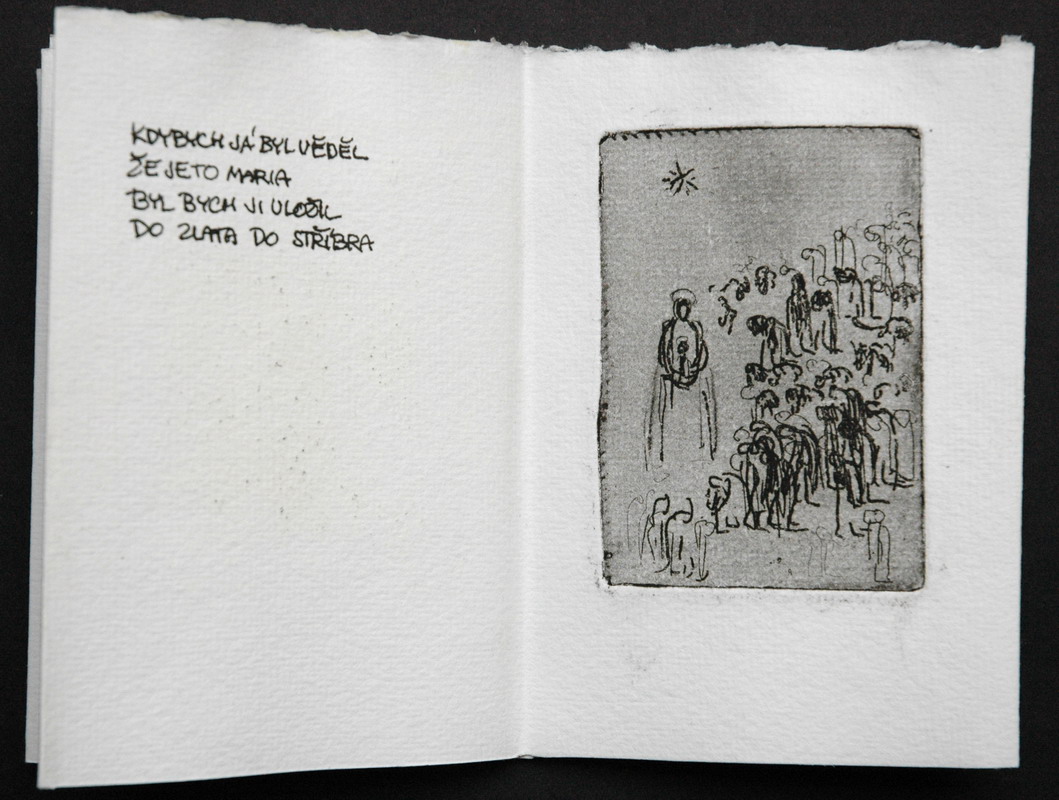 KDYBYCH JÁ BYL VĚDĚL
ŽE JE TO MARIA
BYL BYCH JI ULOŽIL
DO ZLATA DO STŘÍBRA